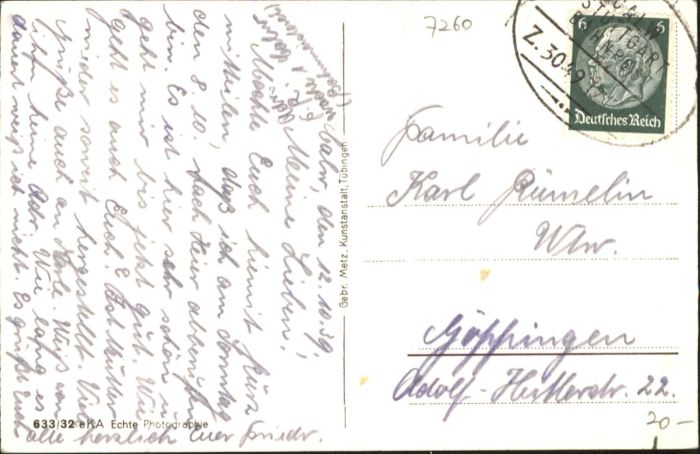 7260
CALW
STUTTGART
BAHNPOST
Z. 3049
6 6
Deutsches Reich
Familie
Karl Rümelin
Wtw.
Göppingen
Adolf-Hitlerstr. 22.
20-
Gebr. Metz, Kunstanstalt, Tübingen
633/32 eKA Echte Photographie
Calw, den 12.10.39.
Meine Lieben!
Möchte Euch hiemit kurz
mitteilen, daß ich am Sonntag
den 8.10. nach hier
bin. Es ist hier sehr schön u.
geht mir bis jetzt gut. Wie
geht es auch Euch? Ist Mutter
wieder soweit hergestellt. Viele
Grüße auch an Karle. Weiß von
ihm keine Adr. Wie lang es
dauert weiß ich nicht. Es grüßt Euch
alle herzlich Euer Friedr.